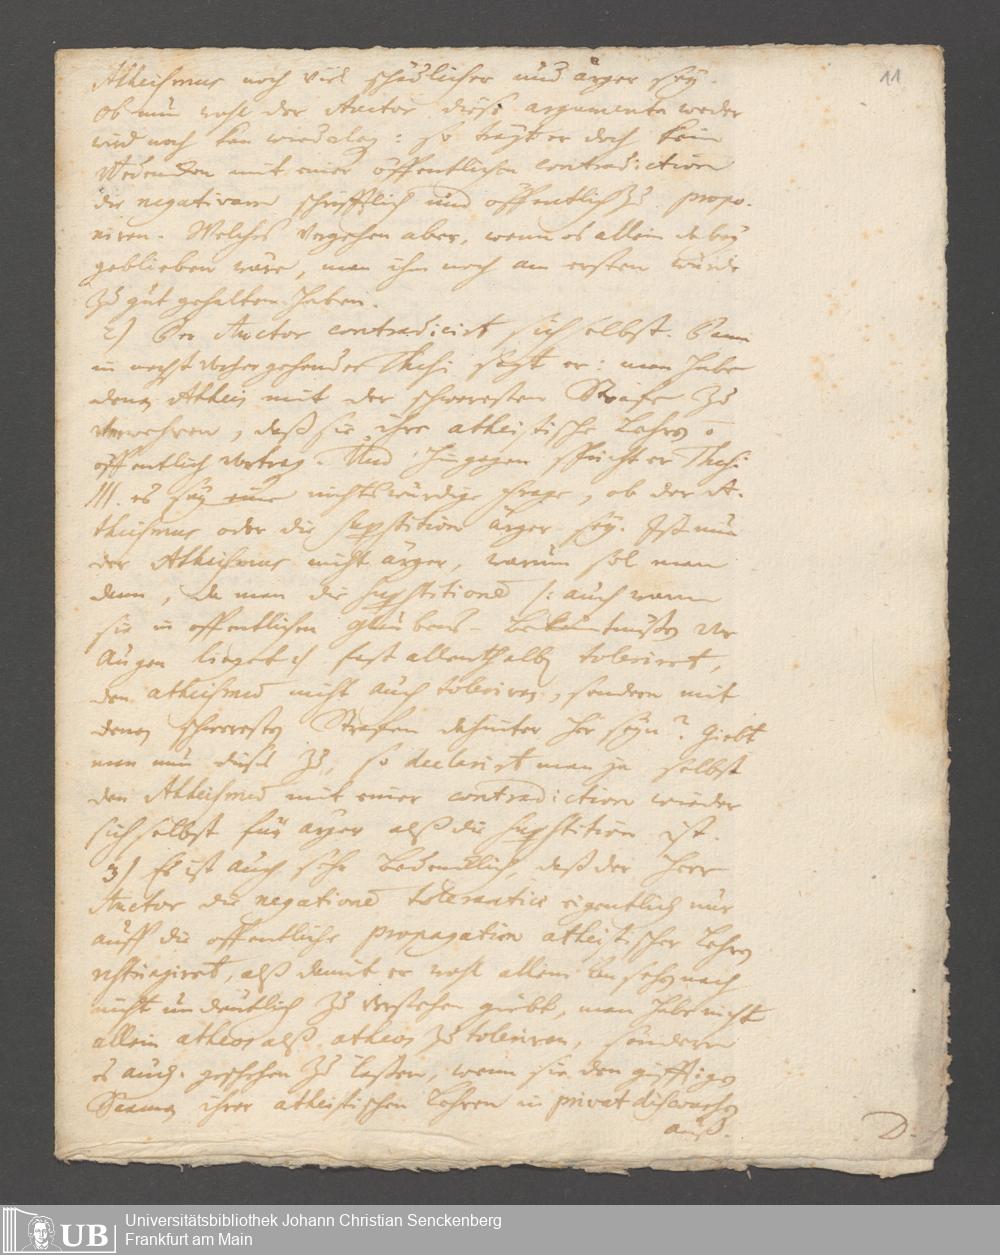 11
Atheismus noch viel schädlicher und ärger sey.
Ob nun wohl der Auctor diese argumenta weder
wird noch kan wiederlegen: so trägt er doch kein
Bedencken mit einer öffentlichen contradiction
die negativam schrifftlich und öffentlich zu propo-
niren. Welches Vergehen aber, wenn es allein dabey
geblieben wäre, man ihm noch am ersten würde
zu gut gehalten haben.
2) Der Auctor contradicirt sich selbst. Dann
in nechst vorhergehender Thesi sagt er: man habe
denen Atheis mit der schweresten Strafe zu
verwehren, daß sie ihre atheistische Lehren
öffentlich vortragen. Und hingegen spricht er Thesi
III. es sey eine nichtswürdige Frage, ob der A-
theismus oder die superstition ärger sey. Ist nun
der Atheismus nicht ärger, warum sol man
dann, da man die superstitiones /: auch wann
sie in offentlichen Glaubens-Bekänntnußen vor
Augen liegen fast allenthalben tolerirt,
den atheismus nicht auch toleriren, sondern mit
denen schweresten Strafen dahinter her seyn? Giebt
man nun dieses zu, so declarirt man ja selbst
den Atheismus mit einer contradiction wieder
sich selbst für ärger alß die superstition ist.
3) Es ist auch sehr bedencklich, daß der Herr
Auctor die negationem tolerantiae eigentlich nur
auff die offentliche propagation atheistischer Lehren
restringiret, alß damit er wohl allem Ansehen nach
nicht undeutlich zu verstehen giebt, man habe nicht
allein atheos alß atheos zu toleriren, sondern
es auch geschehen zu laßen, wenn sie den gifftigen
Saamen ihrer atheistischen Lehren in privat discursen
auß-
D.
Universitätsbibliothek Johann Christian Senckenberg
Frankfurt am Main
UB